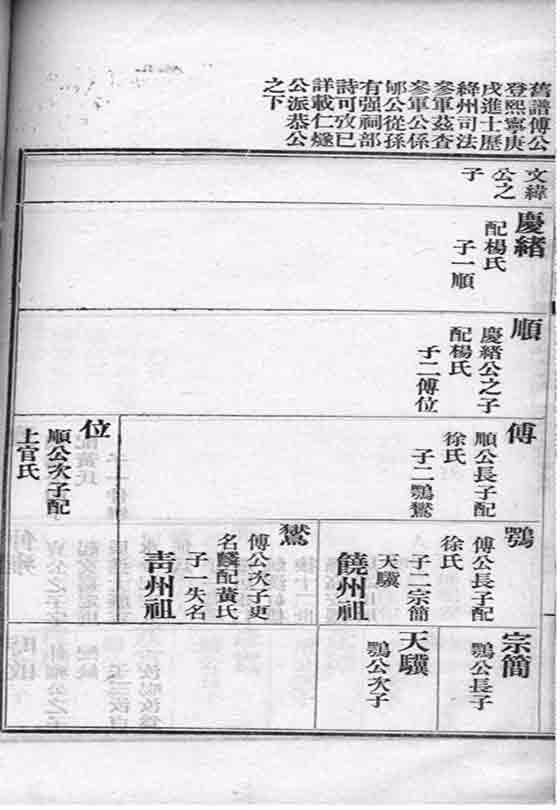 舊譜傅公
登熙寧庚
戌進士歷
絳州司法
參軍茲查
參軍公係
郇公從孫
有强祠部
詩可攷已
詳載仁燧
公派恭公
之下
文緯
公之
子
慶緒
配楊氏
子一順
順
慶緒公之子
配楊氏
子二傅位
傅
順公長子配
徐氏
子二鶚鷲
位
順公次子配
上官氏
鶚
傅公長子配
徐氏
子二宗簡
天驥
饒州祖
鷲
傅公次子更
名麟配黃氏
子一失名
靑州祖
宗簡
鶚公長子
天驥
鶚公次子